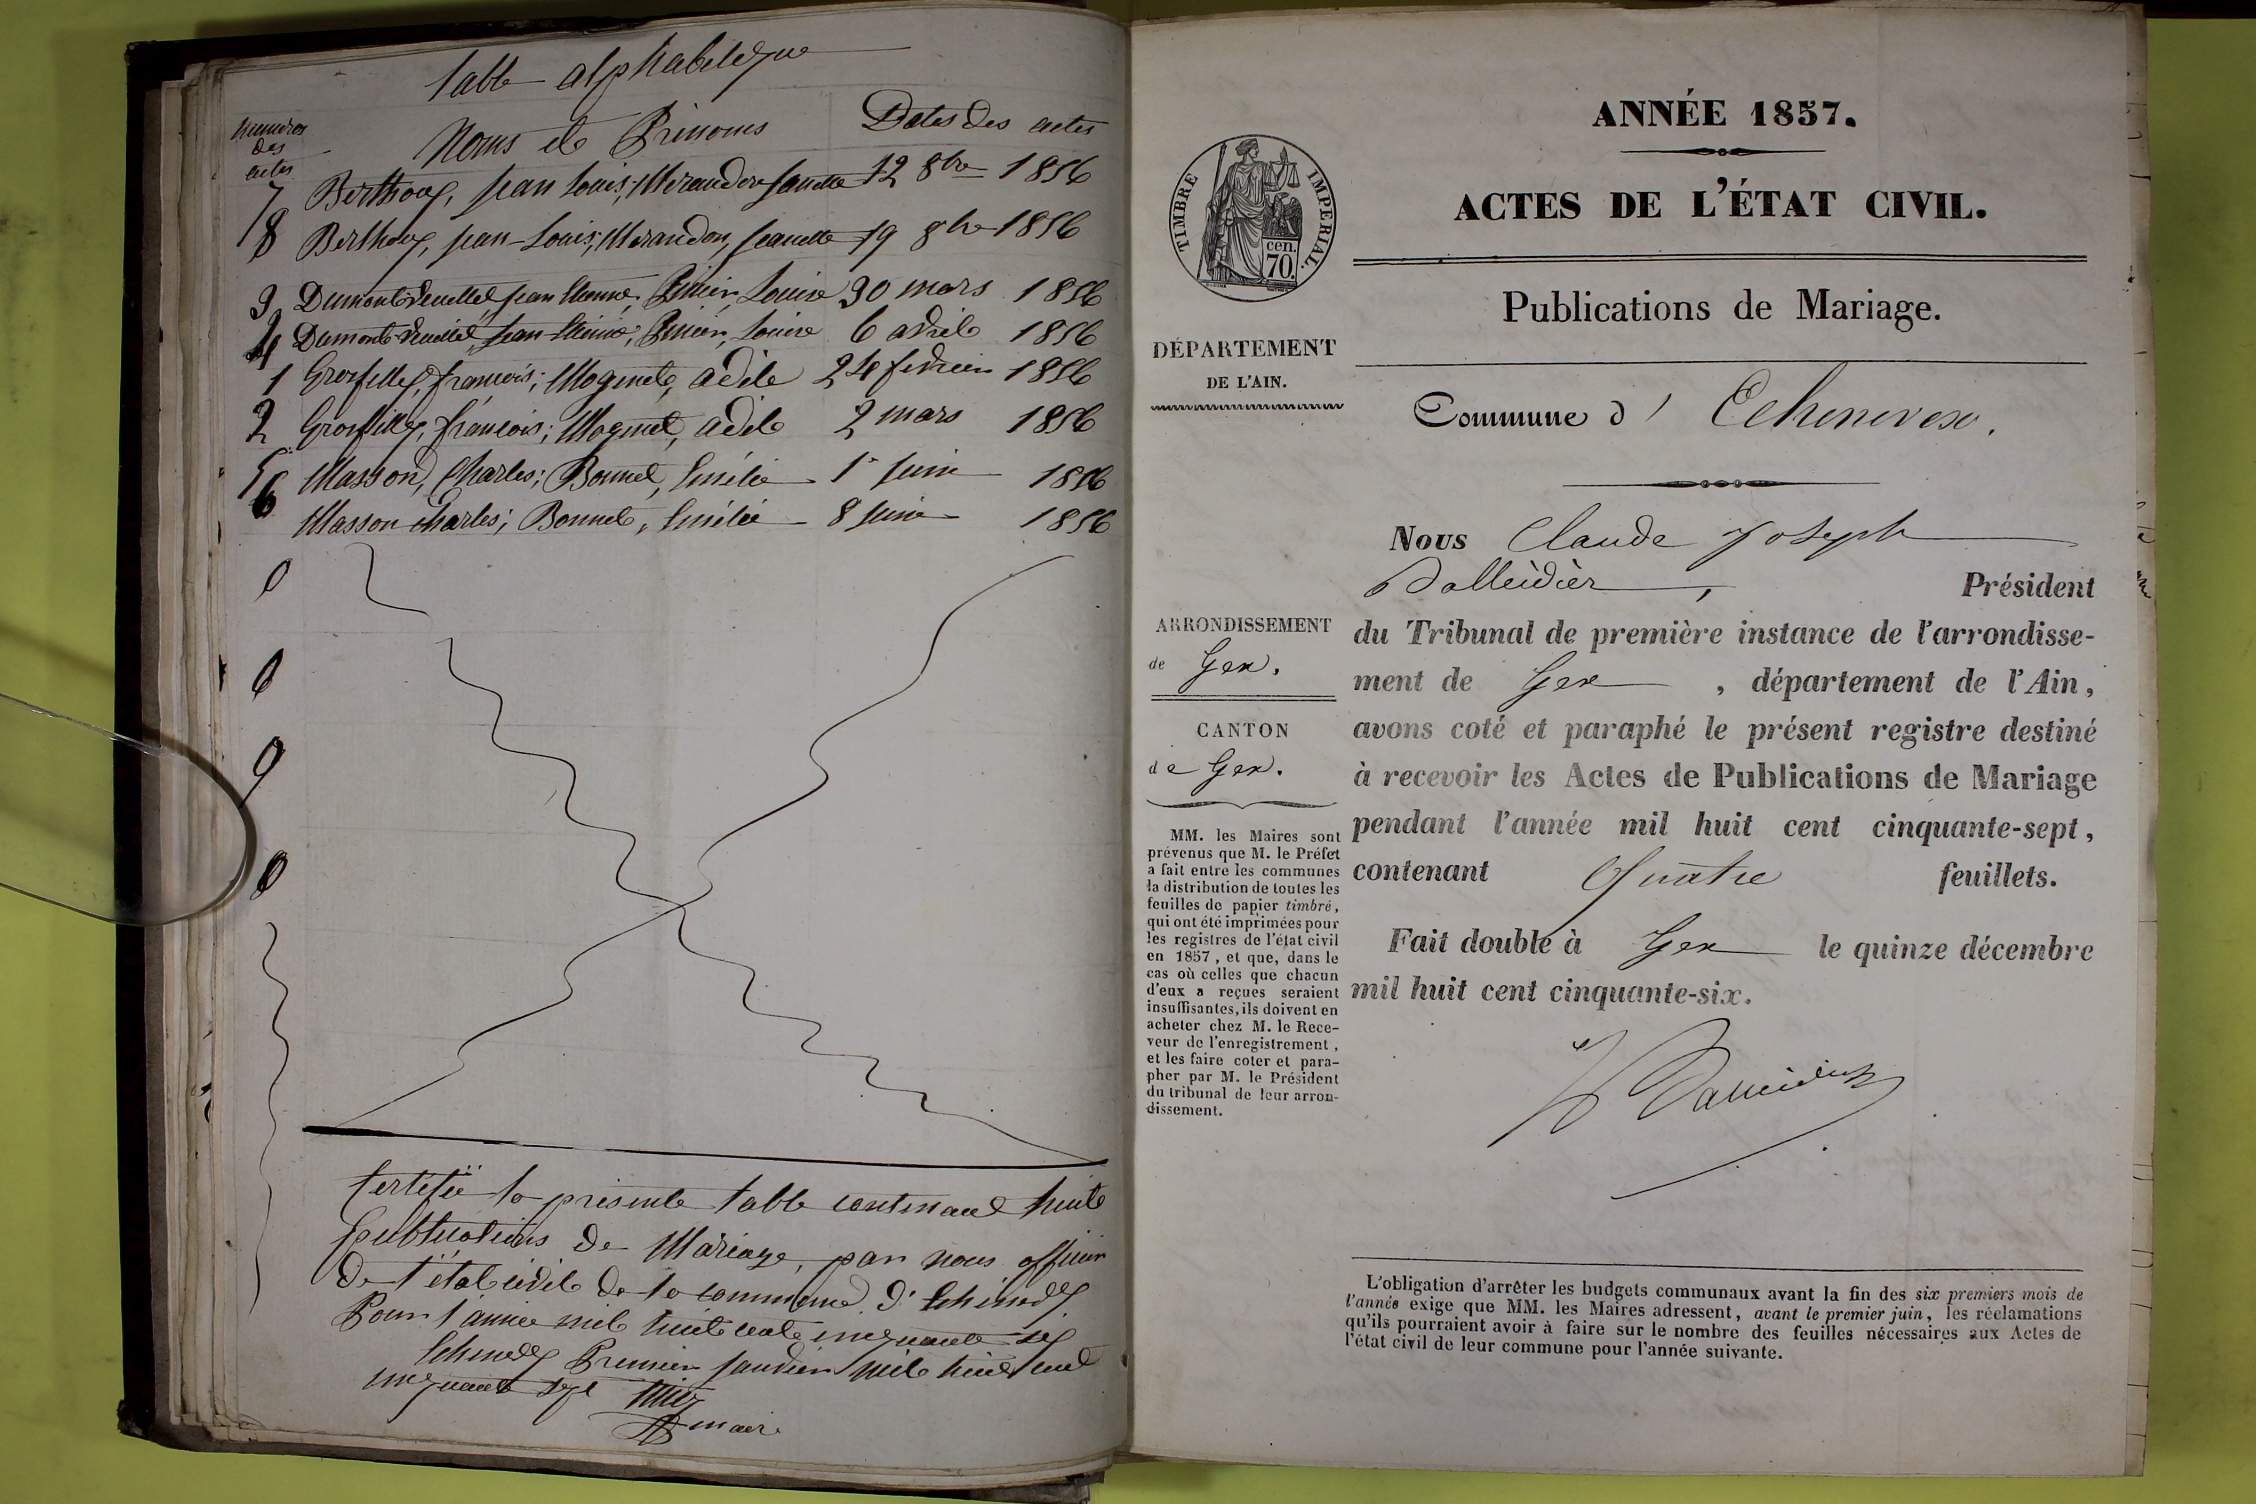 table alphabetique
Numéros des actes
Noms et Prénoms
Dates des actes
7 Berthoux, Jean Louis; Merandon Janette 12 8bre 1856
8 Berthoux, Jean-Louis; Merandon, Jeanette 19 8bre 1856
3 Dumont, Jean Etienne; Louise 30 mars 1856
4 Dumont, Jean Etienne; Louise 6 avril 1856
1 Grosfilley, françois; Moginet, adèle 24 fevrier 1856
2 Grosfilley, françois; Moginet, adèle 2 mars 1856
5 Masson, Charles; Bonnet, Emélie 1er Juin 1856
6 Masson Charles; Bonnet, Emélie 8 Juin 1856
0
0
0
0
Certifié la présente table contenant huit
Publications de Mariage, par nous officier
de l'état civil de la commune d'Echenevex
Pour l'année mil huit cent cinquante six
Echenevex Premier Janvier mil huit cent
cinquante sept
maire
ANNÉE 1857.
ACTES DE L'ÉTAT CIVIL.
TIMBRE IMPERIAL.
cen. 70.
Publications de Mariage.
DÉPARTEMENT
DE L'AIN.
Commune d' Echenevex.
Nous Claude Joseph
Balleidier, Président
du Tribunal de première instance de l'arrondisse-
ment de Gex, département de l'Ain,
avons coté et paraphé le présent registre destiné
à recevoir les Actes de Publications de Mariage
pendant l'année mil huit cent cinquante-sept,
contenant Quatre feuillets.
Fait double à Gex le quinze décembre
mil huit cent cinquante-six.
Balleidier
ARRONDISSEMENT
de Gex.
CANTON
de Gex.
MM. les Maires sont
prévenus que M. le Préfet
a fait entre les communes
la distribution de toutes les
feuilles de papier timbré,
qui ont été imprimées pour
les registres de l'état civil
en 1857, et que, dans le
cas où celles que chacun
d'eux a reçues seraient
insuffisantes, ils doivent en
acheter chez M. le Rece-
veur de l'enregistrement,
et les faire coter et para-
pher par M. le Président
du tribunal de leur arron-
dissement.
L'obligation d'arrêter les budgets communaux avant la fin des six premiers mois de
l'année exige que MM. les Maires adressent, avant le premier juin, les réclamations
qu'ils pourraient avoir à faire sur le nombre des feuilles nécessaires aux Actes de
l'état civil de leur commune pour l'année suivante.